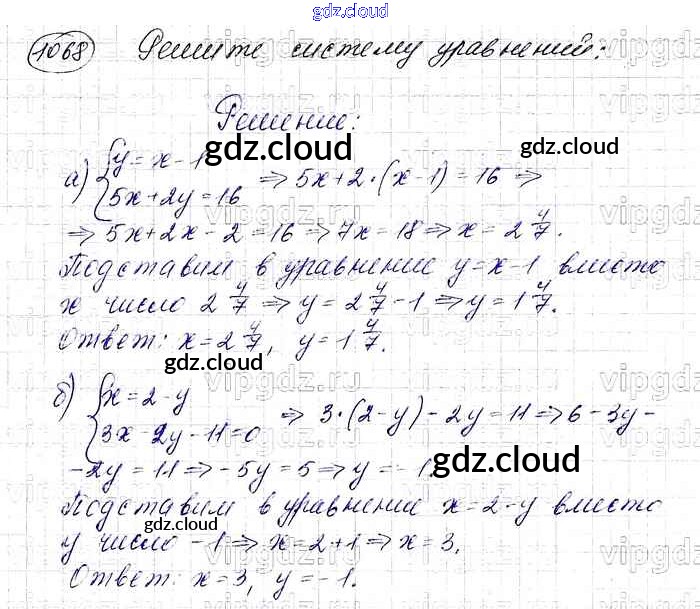 gdz.cloud
1068 Решите систему уравнений:
Решение:
gdz.cloud
а) {y = x - 1
5x + 2y = 16 ⇒ 5x + 2·(x - 1) = 16 ⇒
gdz.cloud
⇒ 5x + 2x - 2 = 16 ⇒ 7x = 18 ⇒ x = 2 4/7.
Подставим в уравнение y = x - 1 вместо
x число 2 4/7 ⇒ y = 2 4/7 - 1 ⇒ y = 1 4/7.
Ответ: x = 2 4/7, y = 1 4/7.
gdz.cloud
б) {x = 2 - y
3x - 2y - 11 = 0 ⇒ 3·(2 - y) - 2y = 11 ⇒ 6 - 3y -
- 2y = 11 ⇒ - 5y = 5 ⇒ y = - 1
gdz.cloud
Подставим в уравнение x = 2 - y вместо
gdz.cloud
y число - 1 ⇒ x = 2 + 1 ⇒ x = 3.
gdz.cloud
Ответ: x = 3, y = - 1.